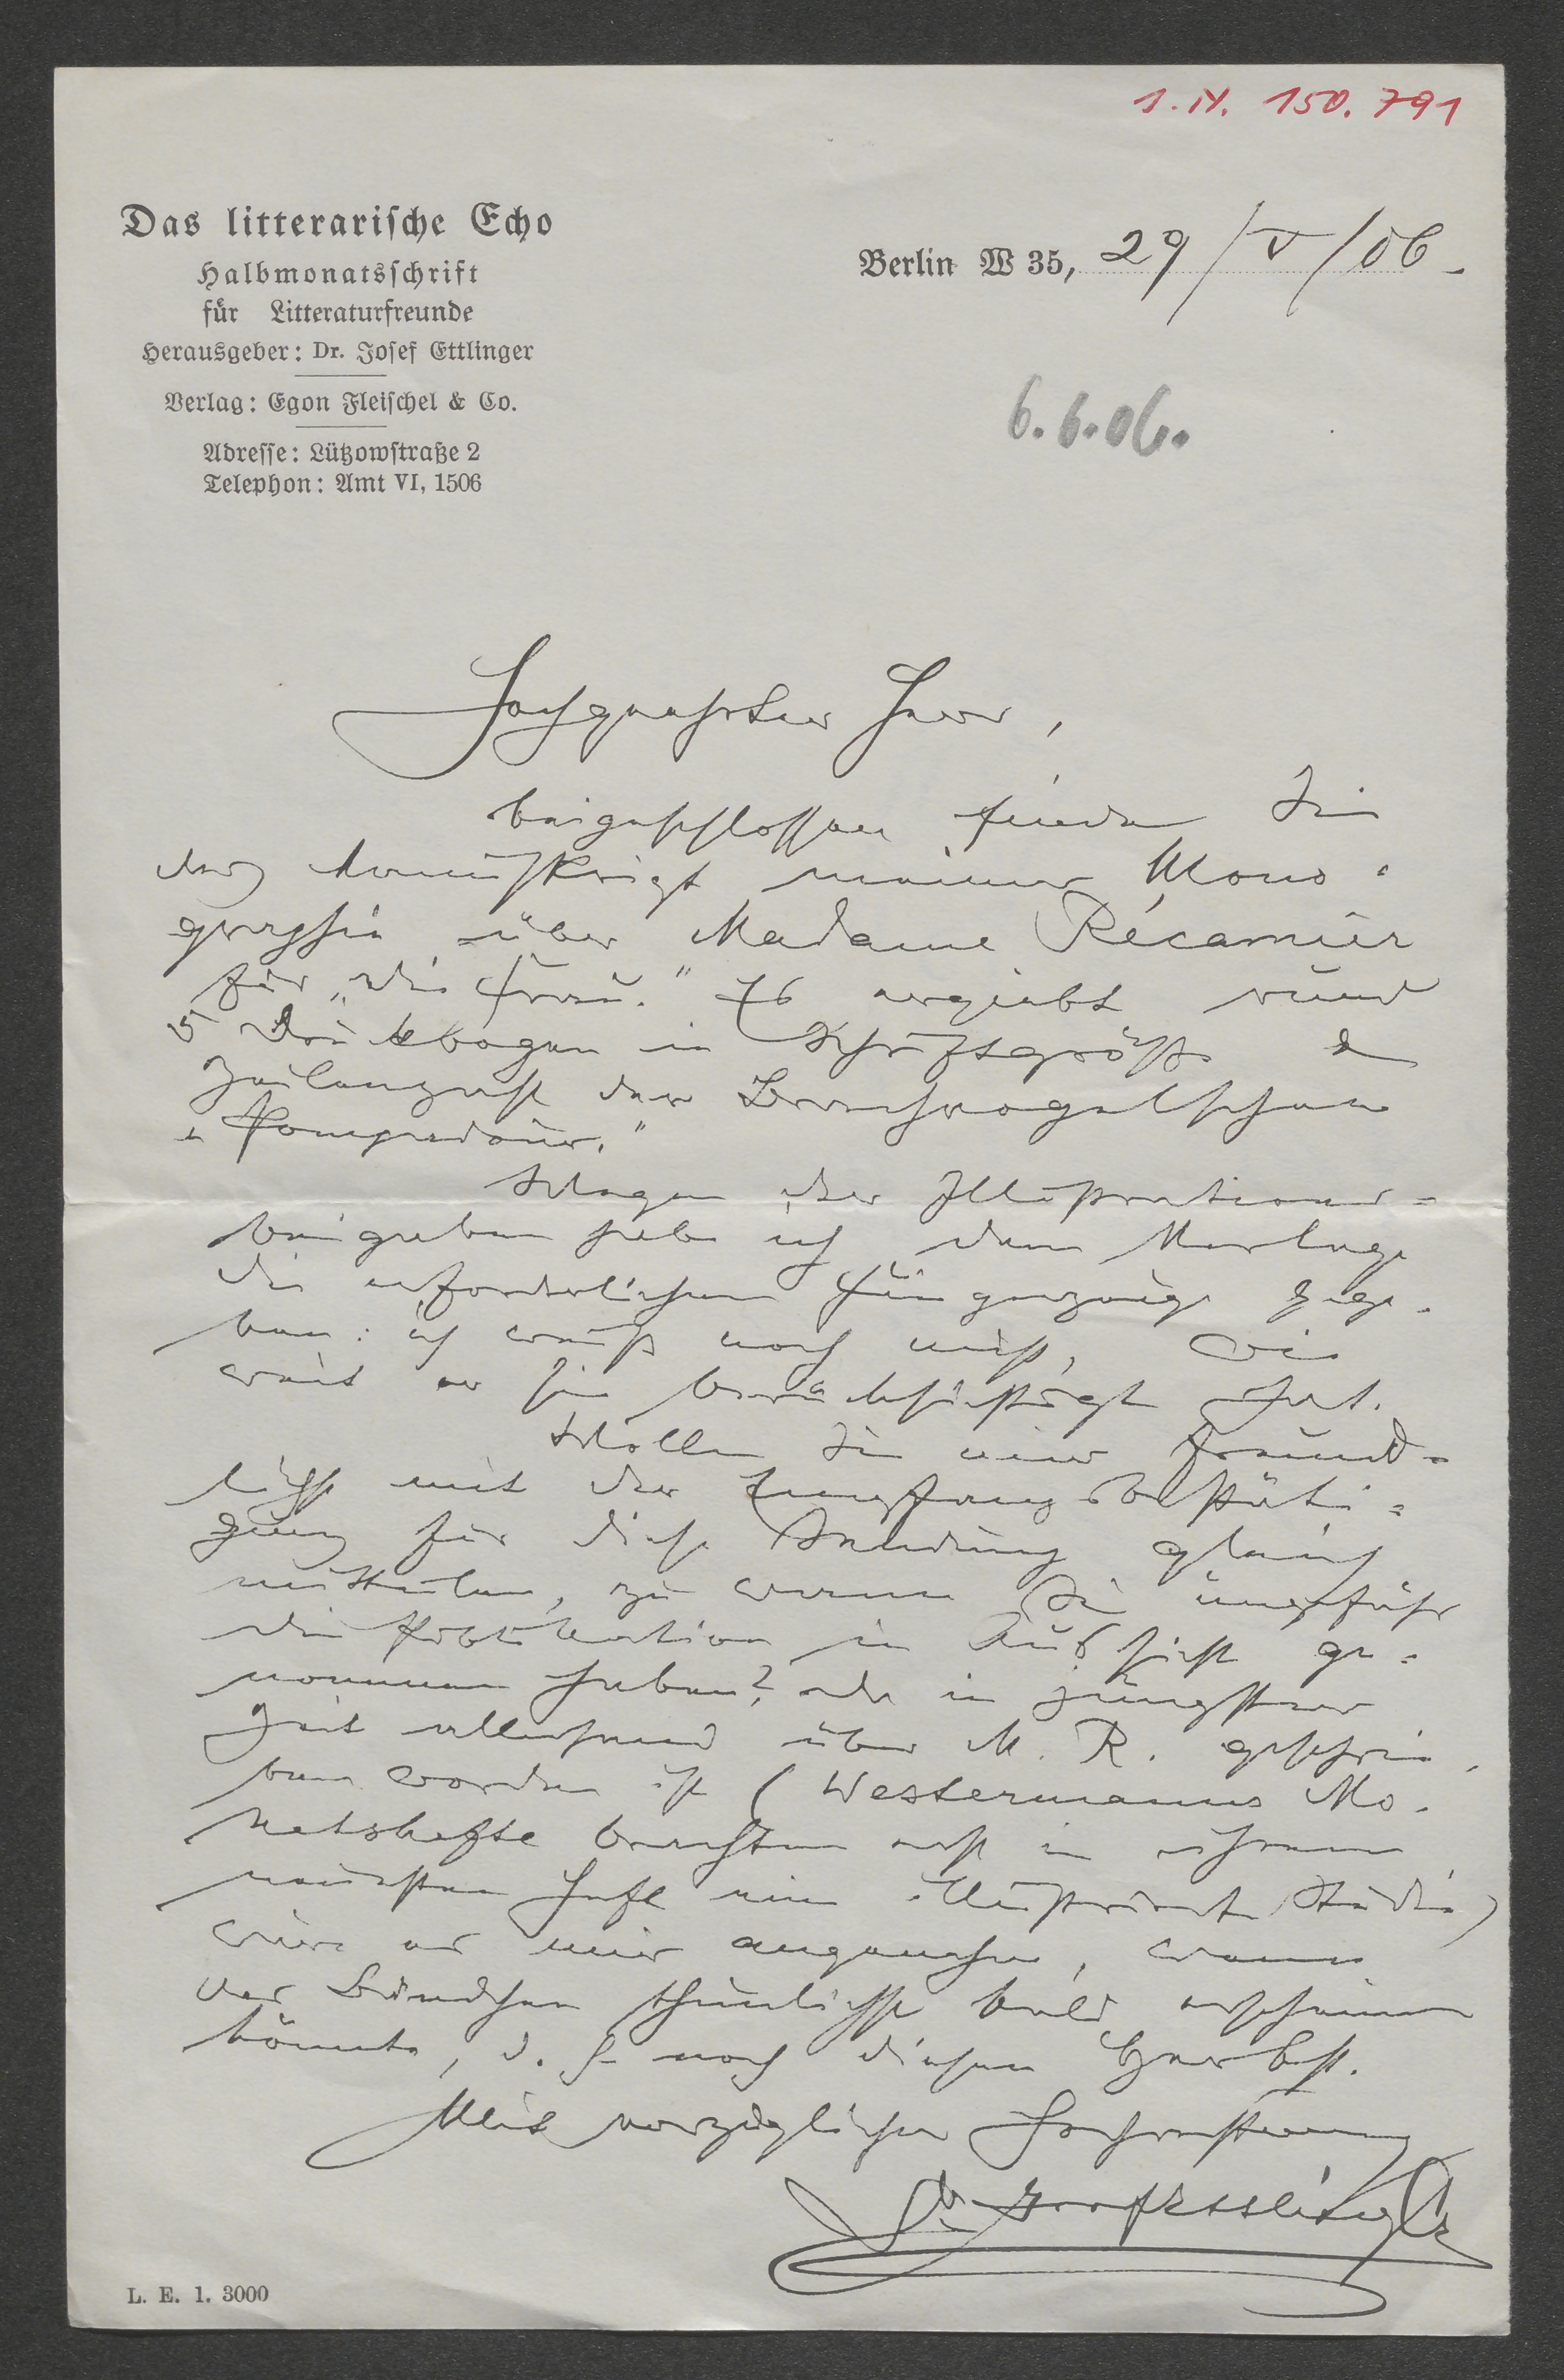 1.N. 150.791
Das litterarische Echo
Halbmonatsschrift
für Litteraturfreunde
Herausgeber: Dr. Josef Ettlinger
Verlag: Egon Fleischel & Co.
Adresse: Lützowstraße 2
Telephon: Amt VI, 1506
Berlin W 35, 29/V/06.
6.6.06.
Hochgeehrter Herr,
beigeschlossen finden Sie
das Manuskript meiner Mono-
graphie über Madame Récamier
für „die Frau." Es ergiebt rund
5 Druckbogen in Schriftgröße &
Zeilenzahl der Brachvogelschen
„Pompadour."
Wegen der Illustrations-
beigaben habe ich dem Verlage
die erforderlichen Fingerzeige gege-
ben: ich weiß noch nicht, wie
weit er sie berücksichtigt hat.
Wollen Sie mir freund-
lichst mit der Empfangsbestäti-
gung für diese Sendung gleich
mitteilen, zu wann Sie ungefähr
die Publikation in Aussicht ge-
nommen haben? da in jüngster
Zeit allerhand über M. R. geschrie-
ben worden ist (Westermanns Mo-
natshefte brachten erst in ihrem
neuesten Heft eine illustrierte Studie)
wäre es mir angenehm, wenn
das Bändchen thunlichst bald erscheinen
könnte, d. h. noch diesen Herbst.
Mit vorzüglicher Hochachtung
Dr. Josef Ettlinger
L. E. 1. 3000